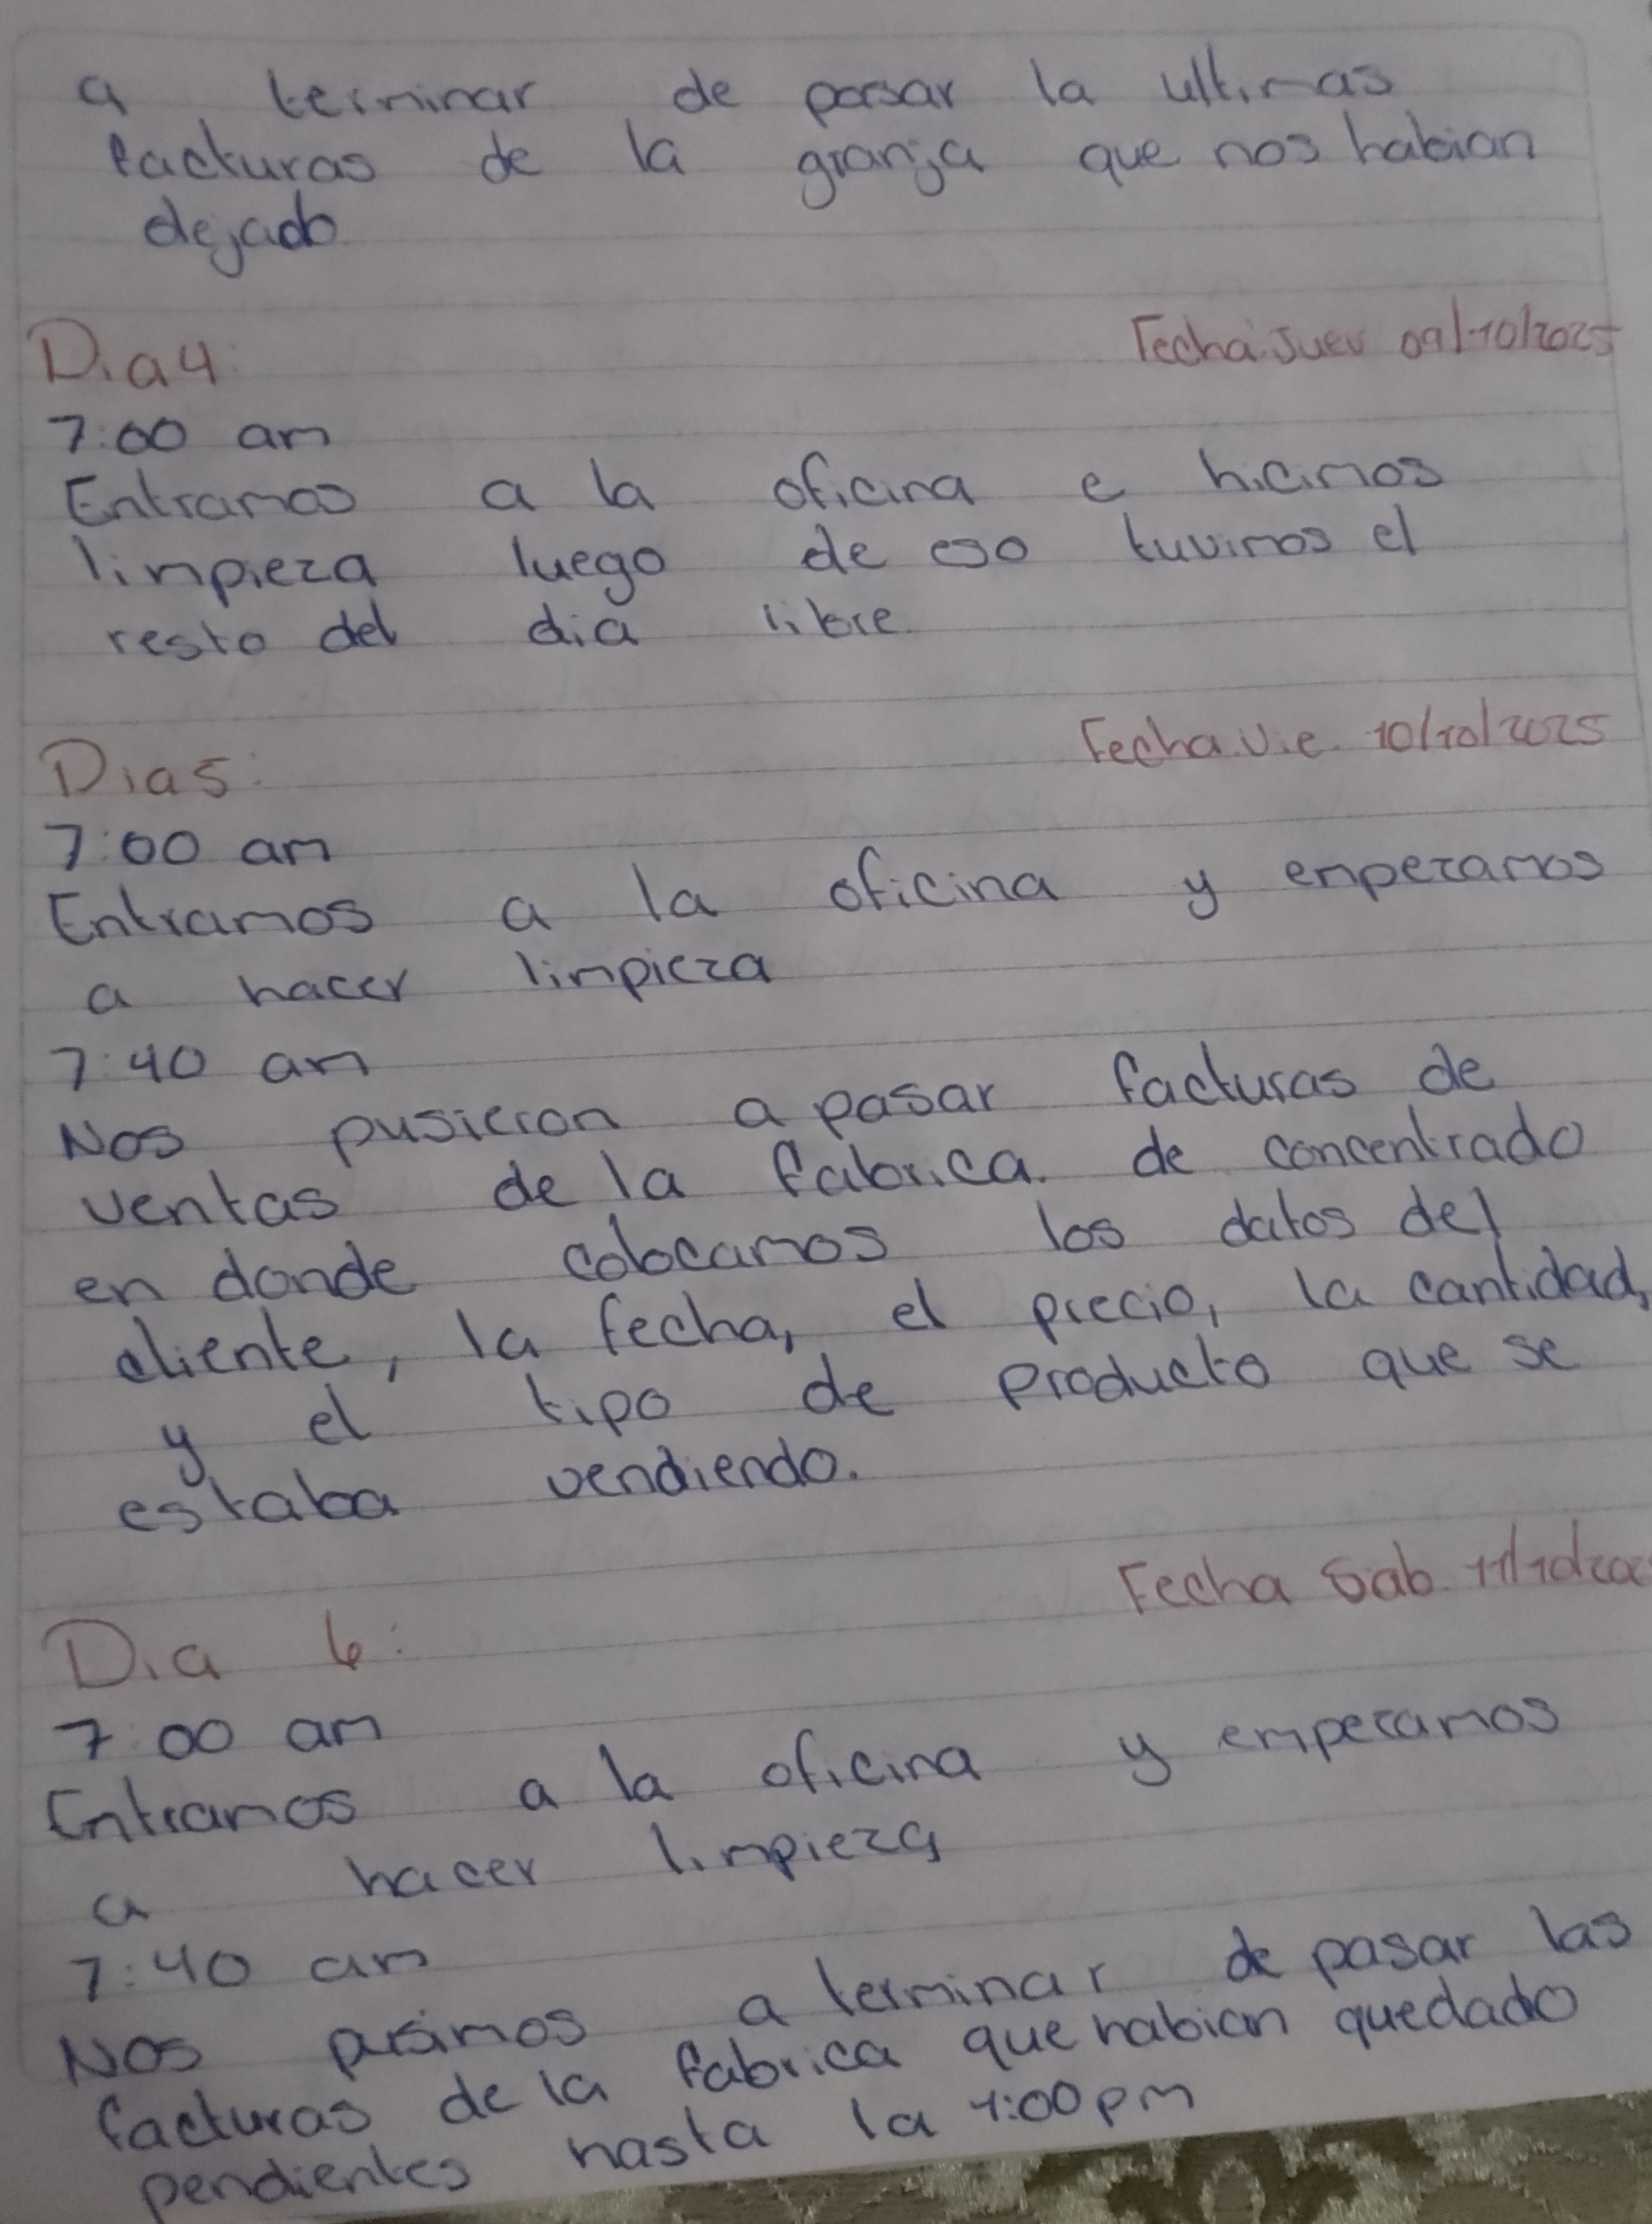 a terminar de pasar la ultimas
facturas de la granja que nos habian
dejado
Dia 4: Fecha: Juev 09/10/2025
7:00 am
Entramos a la oficina e hicimos
limpieza luego de eso tuvimos el
resto del dia libre.
Dia 5: Fecha. Vie. 10/10/2025
7:00 am
Entramos a la oficina y empezamos
a hacer limpieza
7:40 am
Nos pusieron a pasar facturas de
ventas de la fabrica. de concentrado
en donde colocamos los datos del
cliente, la fecha, el precio, la cantidad,
y el tipo de producto que se
estaba vendiendo.
Fecha Sab. 11/10/202
Dia 6:
7:00 am
Entramos a la oficina y empezamos
a hacer limpieza
7:40 am
Nos pusimos a terminar de pasar las
facturas de la fabrica que habian quedado
pendientes hasta la 1:00 pm